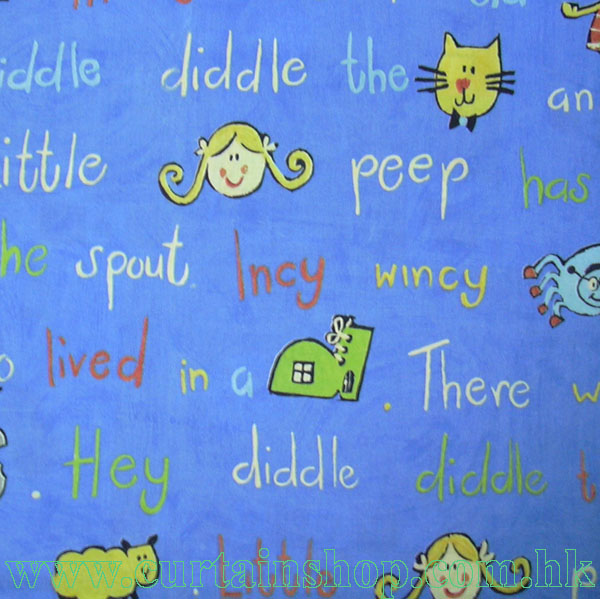 diddle the an
ittle peep has
he spout Incy wincy
o lived in a . There w
. Hey diddle diddle t
Little
www.curtainshop.com.hk